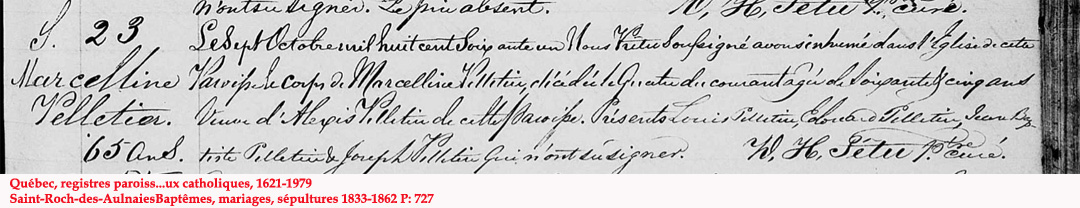 n'ont su signer. Le père absent. W, H, Têtu Ptre curé.
S. 23 Le Sept Octobre mil huit cent Soixante un Nous Ptre Soussigné avons inhumé dans l'Eglise de cette
Marcelline Paroisse le corps de Marcelline Pelletier, décédée le Quatre du courant agée de Soixante & cinq ans
Pelletier. Veuve d'Alexis Pelletier de cette Paroisse. Présents Louis Pelletier, Edouard Pelletier, Jean Bap-
65 ans. tiste Pelletier & Joseph Pelletier qui n'ont su signer. W, H, Têtu Ptre curé.
Québec, registres paroiss...ux catholiques, 1621-1979
Saint-Roch-des-AulnaiesBaptêmes, mariages, sépultures 1833-1862 P: 727